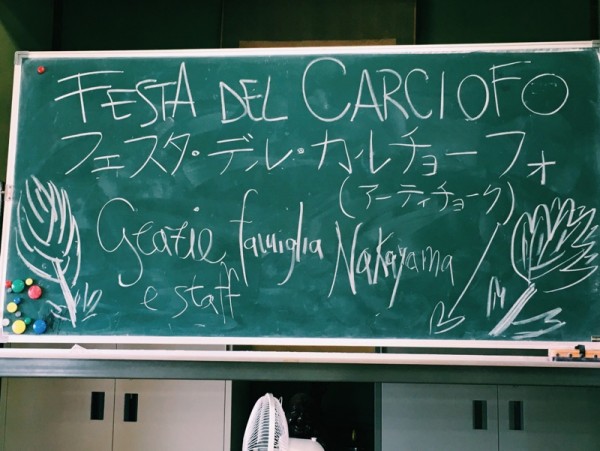 FESTA DEL CARCIOFO
フェスタ・デル・カルチョーフォ
(アーティチョーク)
Grazie famiglia Nakayama
e staff